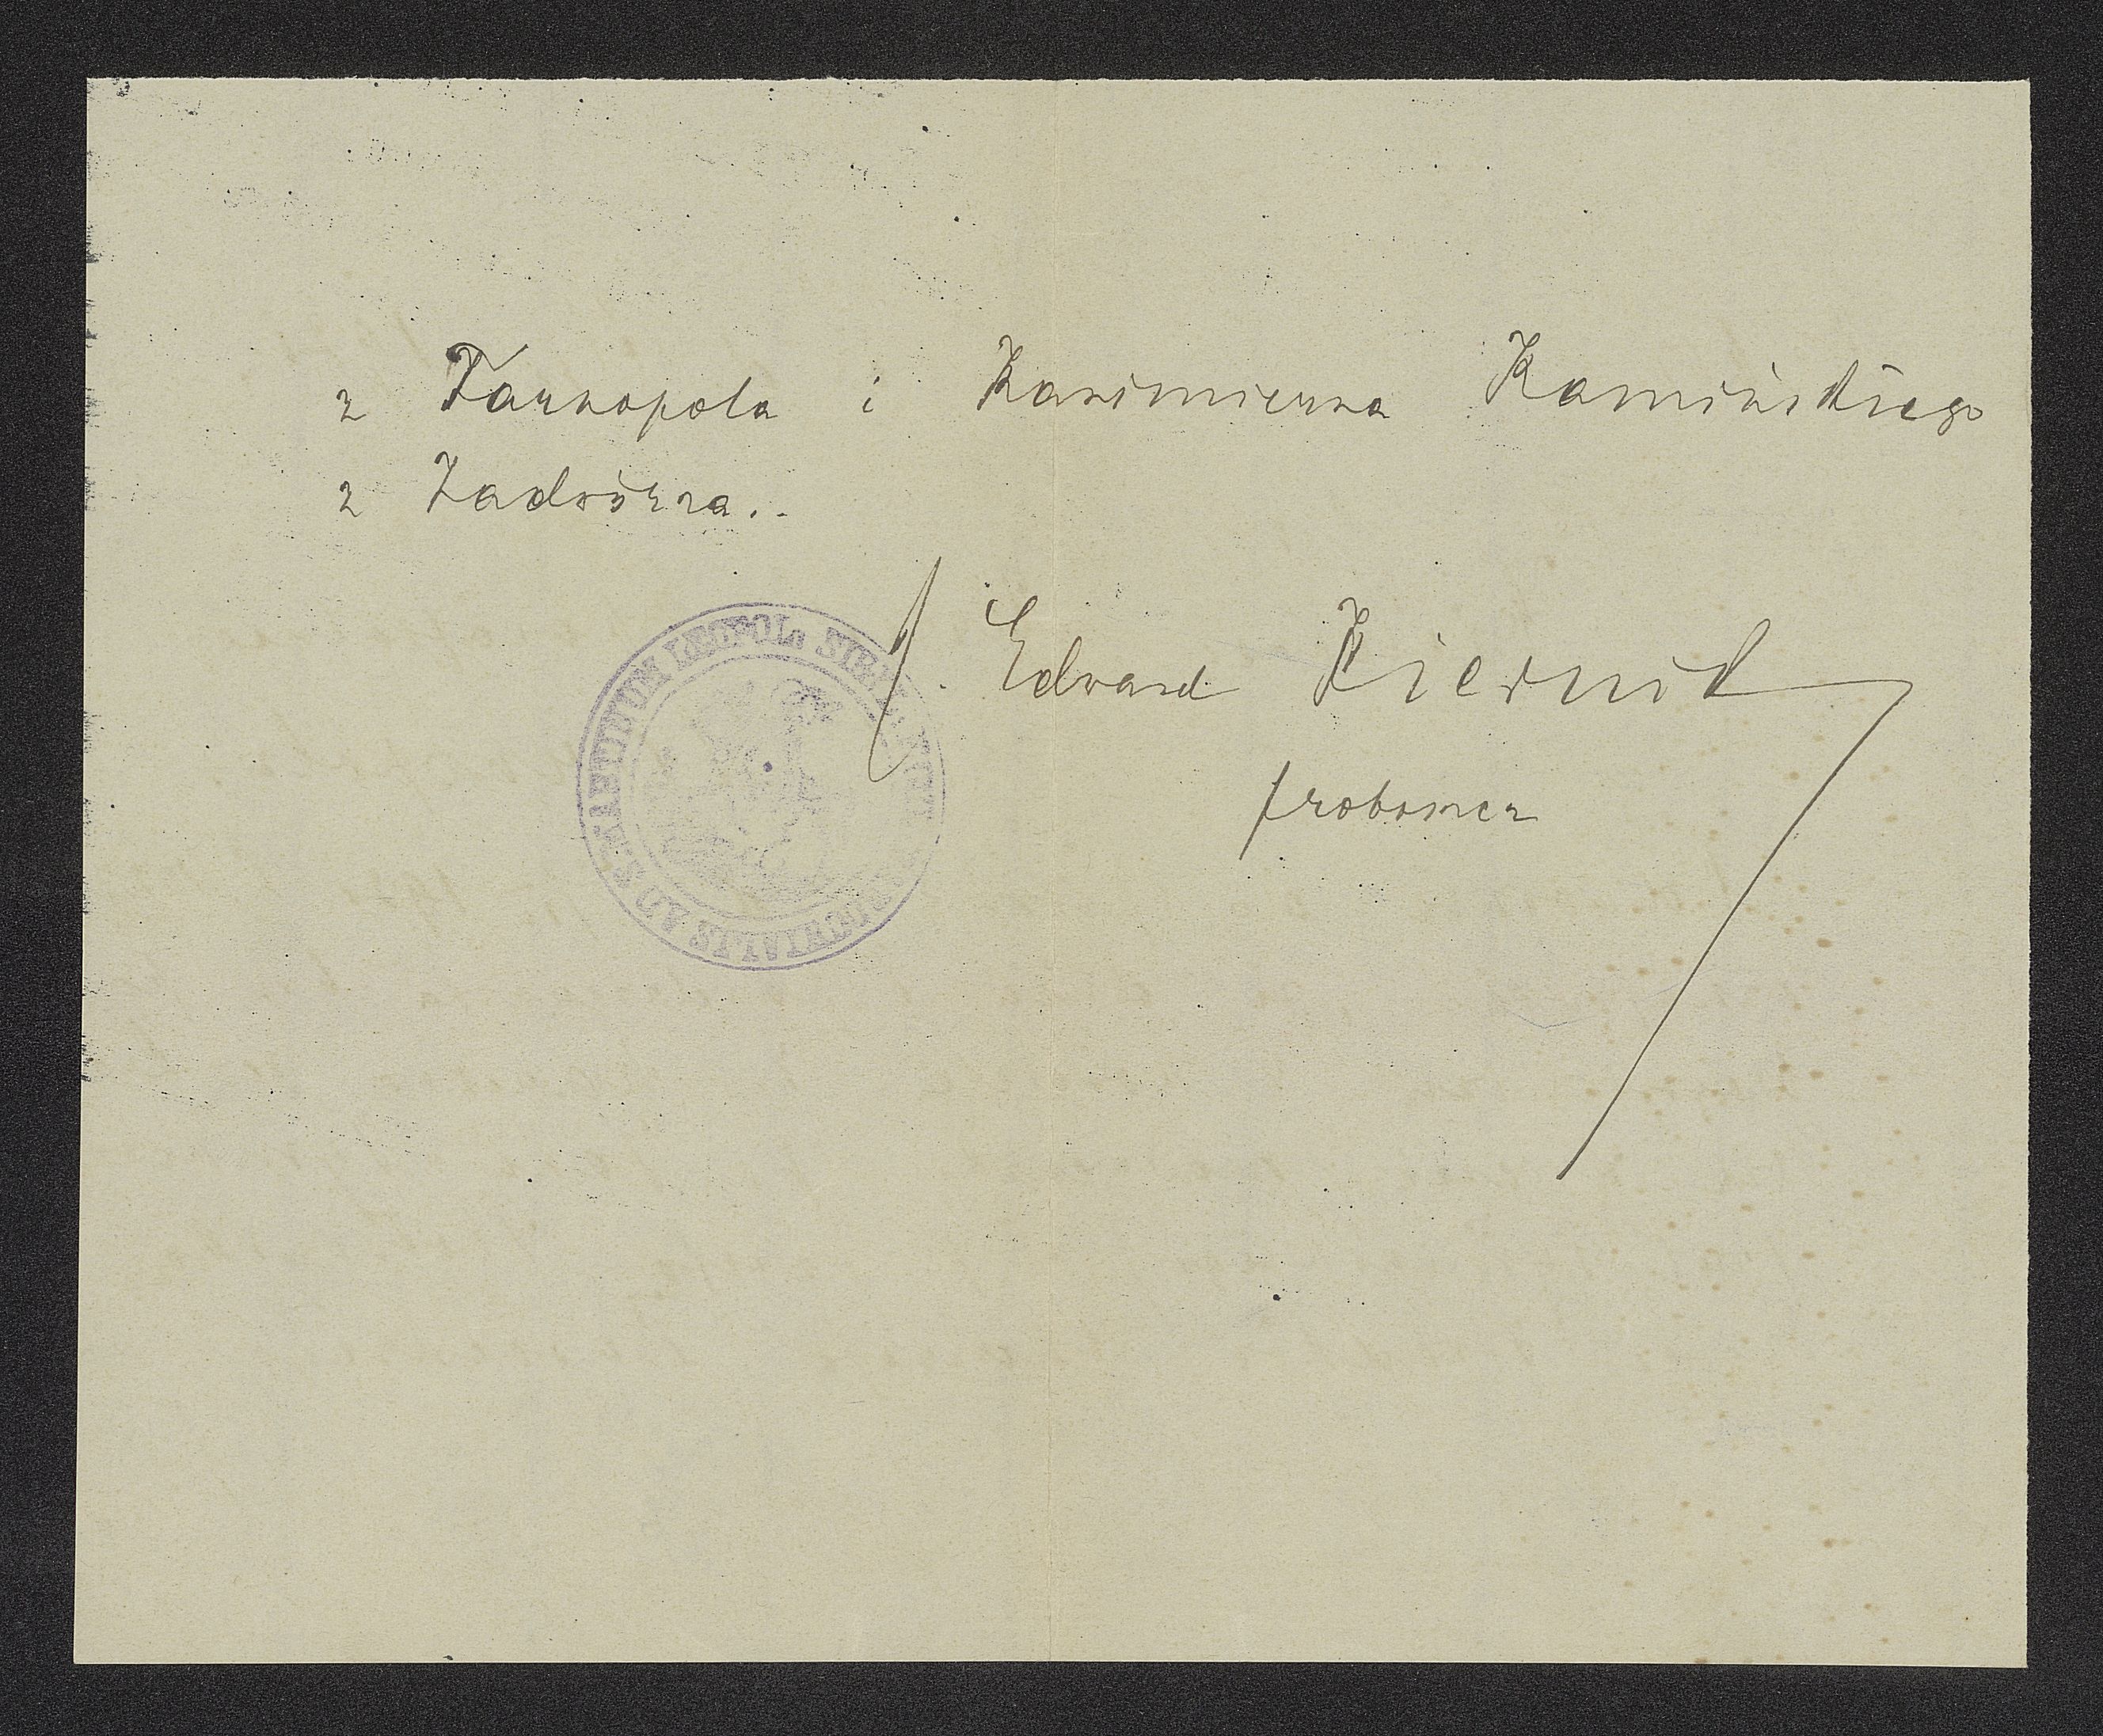 z Tarnopola i Kazimierza Kamińskiego
z Zadwórza..
J. Edward Kiernik
proboszcz
LEOPOL.